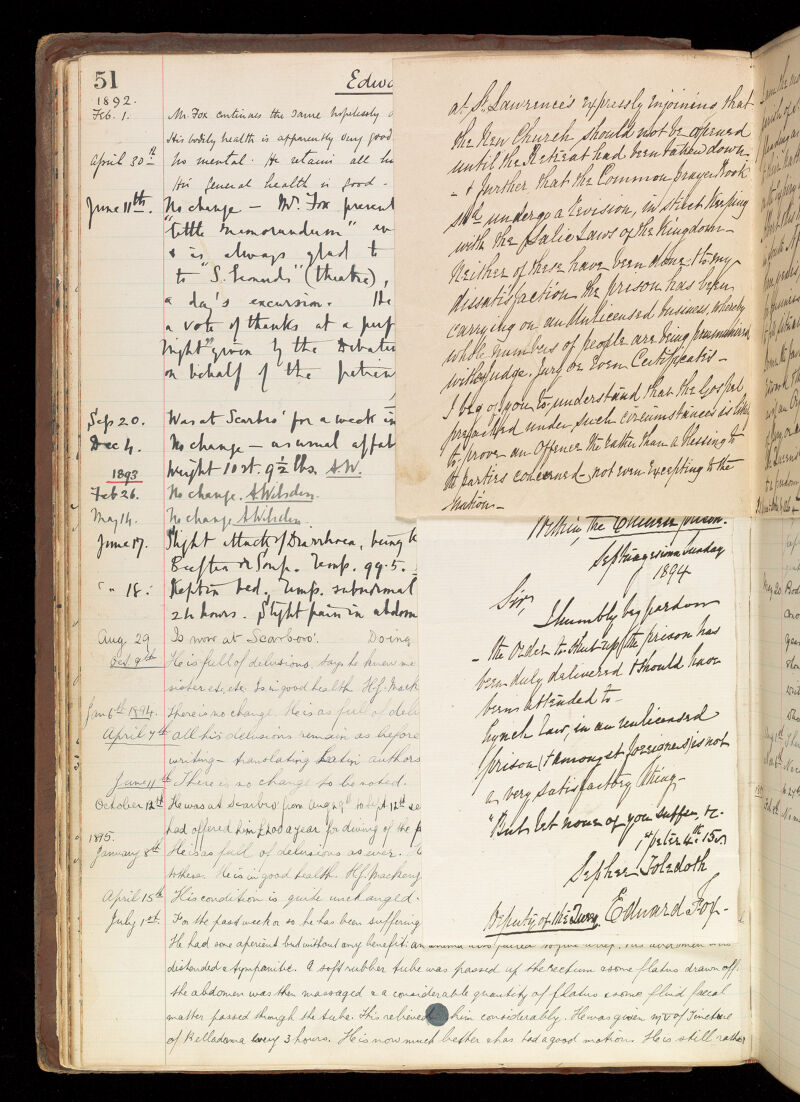 51
Edwa
1892.
Feb. 1. Mr. Fox continues the same hopelessly
His bodily health is apparently very good
April 30th No mental. He retains all
His general health is good -
June 11th. No change - Mr. Fox present
"little memorandum"
& is always glad to
to "S. Leonards" (theatre),
a day's excursion. He
a vote of thanks at a perf
night" given by the Debati
on behalf of the patien
Sep 20. Was at Scarbro' for a week in
Dec 4. No change - as usual affab
Weight 10 st. 9½ lbs. A.W.
1893
Feb 26. No change. A Wilsden.
May 14. No change A Wilsden
June 17. Slight attack of Diarrhoea, being k
Beeftea & Soup. Temp. 99.5.
" " 18: Kept in bed. Temp. subnormal
24 hours. Slight pain in abdom
Aug. 29 Is now at Scarboro'. Doing
Oct. 9th He is full of delusions, says he knew me
sister etc. etc. Is in good health. H.J. Mack
Jan 6th 1894. There is no change. He is as full of delu
April 7th all his delusions remain as before
writing - translating Latin authors
June 11th There is no change to be noted.
October 12th He was at Scarbro' from Aug 29th to Sept 12th se
had offered him £200 a year for diving off the p
1895.
January 8th He is as full of delusions as ever. H
others. He is in good health. H.J. Mackenz
April 15th His condition is quite unchanged.
July 1st. For the past week or so he has been suffering
He had some aperient but without any benefit: an
distended & tympanitic. A soft rubber tube was passed up the rectum & some flatus drawn off.
The abdomen was then massaged & a considerable quantity of flatus & some fluid faecal
matter passed through the tube. This relieved him considerably. He was given of Tincture
of Belladonna every 3 hours. He is now much better & has had a good motion. He is still rather
at St. Lawrence's expressly enjoining that
the New Church should not be opened
until the Retreat had been taken down -
- & further, that the Common Prayer Book
shd. undergo a Revision, in strict keeping
with the Salic Laws of the Kingdom -
Neither of these have been done & to my
dissatisfaction the prison has been
carrying on an Unlicensed business, whereby
whole numbers of people are being
without Judge, Jury or Even Certificates -
I beg of you to understand that the Gospel
preached under such circumstances is likely
to prove an Offence rather than a blessing to
the parties concerned - not even excepting to the
Matrons -
Within, the Church prison.
Septuagesima Sunday
1894
Sir,
I humbly beg pardon
- the Order to Shut up the prison has
been duly delivered & should have
been attended to -
Lynch Law, in an unlicensed
prison (& amongst foreigners) is not
a very satisfactory thing -
"But let none of you suffer, &c.
1st Peter 4th. 15 v.
Sepher Toledoth
Deputy of the Jury, Edward Fox -